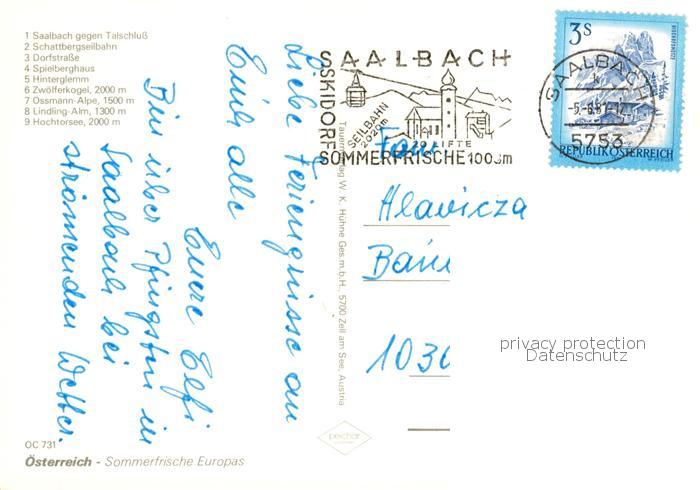 1 Saalbach gegen Talschluß
2 Schattbergseilbahn
3 Dorfstraße
4 Spielberghaus
5 Hinterglemm
6 Zwölferkogel, 2000 m
7 Ossmann-Alpe, 1500 m
8 Lindling-Alm, 1300 m
9 Hochtorsee, 2000 m
Liebe Feriengrüsse an
Euch alle
Eure Elfi
Bin über Pfingsten in
Saalbach bei
strömenden Wetter.
OC 731
Österreich - Sommerfrische Europas
Tauernverlag W. K. Hühne Ges.m.b.H., 5700 Zell am See, Austria
SAALBACH
SKIDORF
SEILBAHN
2020m
LIFTE
SOMMERFRISCHE 1003m
3S
REPUBLIK ÖSTERREICH
SAALBACH
5753
Fam
Hlavicza
1030
privacy protection
Datenschutz